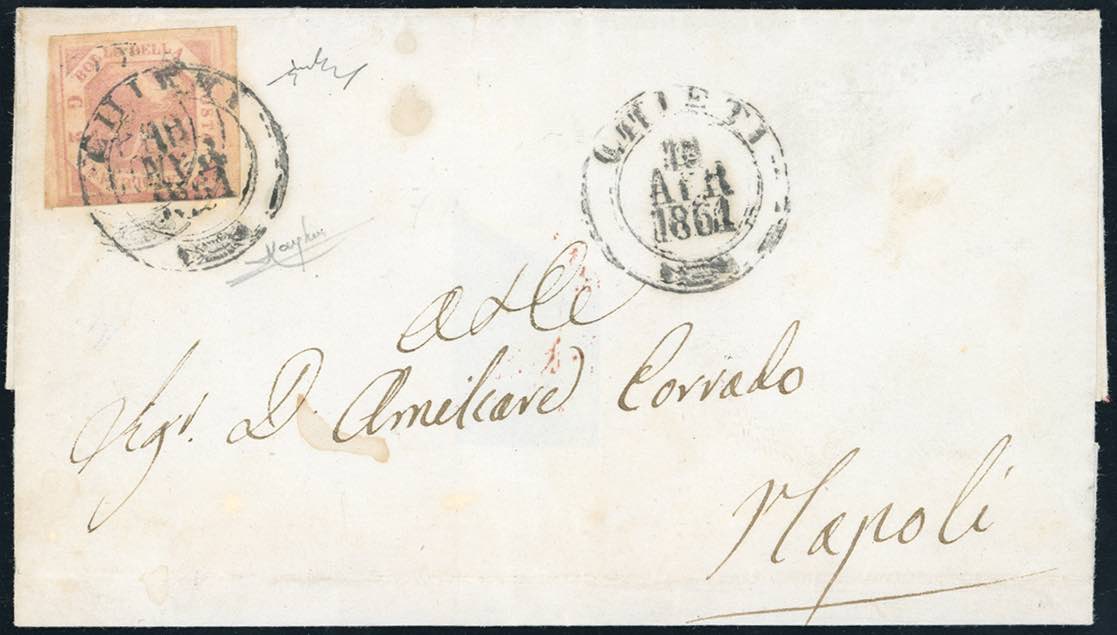 BOLLO DELL
POSTA
G 2
CHIETI
18
APR
1861
CHIETI
18
APR
1861
Sigr. D. Amilcare Corrado
Napoli